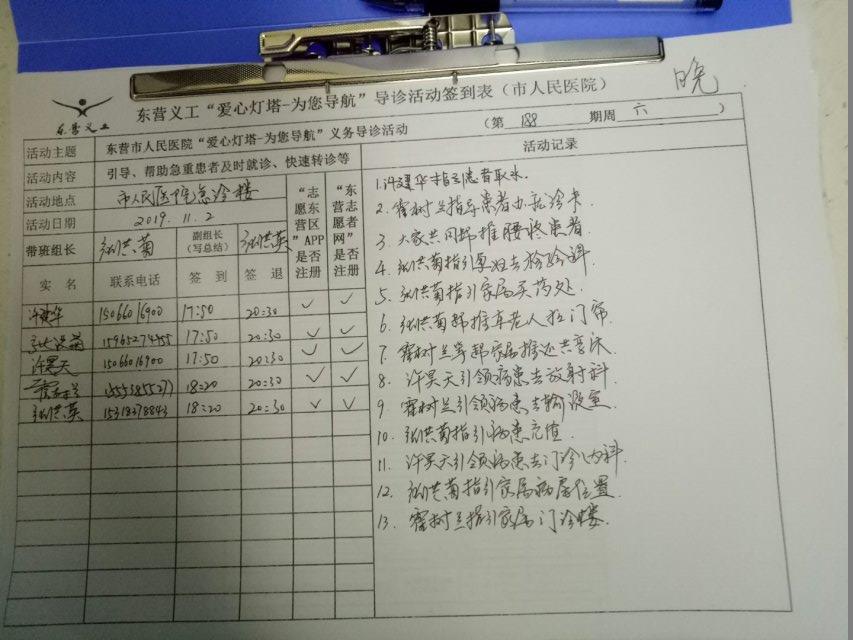 晚
东营义工
东营义工“爱心灯塔-为您导航”导诊活动签到表（市人民医院）
（第 188 期周 六 ）
活动主题 东营市人民医院“爱心灯塔-为您导航”义务导诊活动
活动内容 引导、帮助急重患者及时就诊、快速转诊等
活动地点 市人民医院急诊楼
活动日期 2019.11.2
带班组长 张洪菊 副组长（写总结） 张洪英
“志愿东营区”APP是否注册
“东营志愿者网”是否注册
实名 联系电话 签到 签退
许建华 15066016900 17:50 20:30 ✓ ✓
张洪菊 15965274455 17:50 20:30 ✓ ✓
许昊天 15066016900 17:50 20:30 ✓ ✓
霍树兰 18:20 20:30 ✓ ✓
张洪英 15318378843 18:20 20:30 ✓ ✓
活动记录
1.许建华指引患者取水.
2.霍树兰指导患者办就诊卡
3.大家共同帮推腰疼患者
4.张洪菊指引去检验科
5.张洪菊指引家属买药处
6.张洪菊帮推车老人拉门帘
7.霍树兰等帮家属推还共享床
8.许昊天引领病患去放射科
9.霍树兰引领病患去输液室
10.张洪菊指引病患充值
11.许昊天引领病患去门诊内科
12.张洪菊指引家属病房位置
13.霍树兰指引家属门诊楼